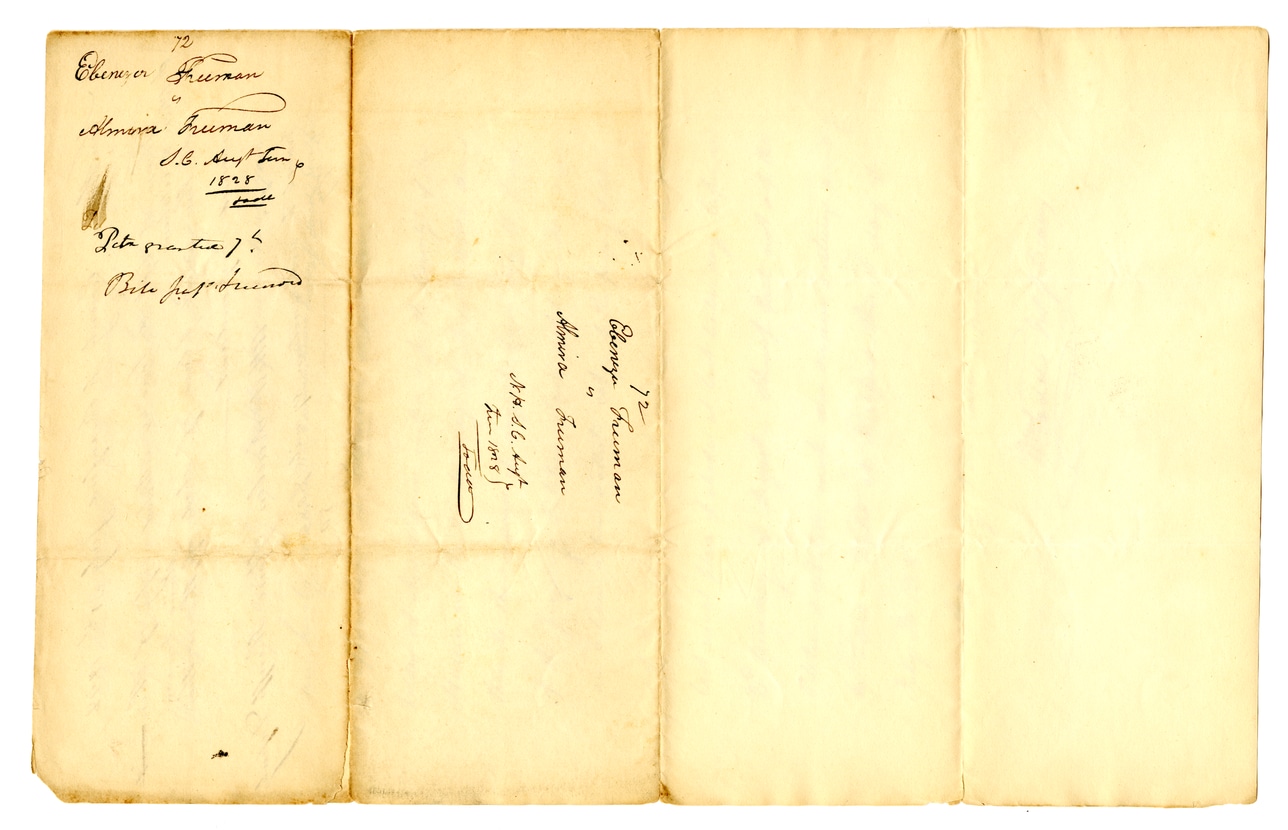 72
Ebenezer Freeman
vs
Almira Freeman
S.C. Augt Term
1828
Petn granted
72
Ebenezr Freeman
vs
Almira Freeman
N.H. S.C. Augt
Term 1828